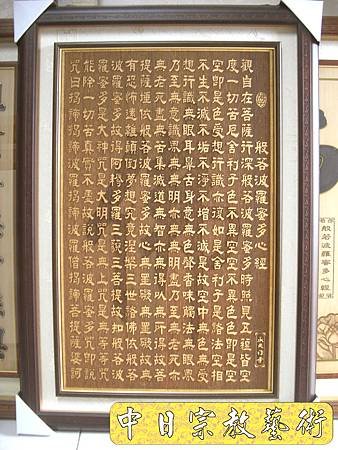 般若波羅蜜多心經
觀自在菩薩行深般若波羅蜜多時照見五蘊皆空
度一切苦厄舍利子色不異空空不異色色即是空
空即是色受想行識亦復如是舍利子是諸法空相
不生不滅不垢不淨不增不減是故空中無色無受
想行識無眼耳鼻舌身意無色聲香味觸法無眼界
乃至無意識界無無明亦無無明盡乃至無老死亦
無老死盡無苦集滅道無智亦無得以無所得故菩
提薩埵依般若波羅蜜多故心無罣礙無罣礙故無
有恐怖遠離顛倒夢想究竟涅槃三世諸佛依般若
波羅蜜多故得阿耨多羅三藐三菩提故知般若波
羅蜜多是大神咒是大明咒是無上咒是無等等咒
能除一切苦真實不虛故說般若波羅蜜多咒即說
咒曰揭諦揭諦波羅揭諦波羅僧揭諦菩提薩婆訶
般若波羅蜜多心經
中日宗教藝術